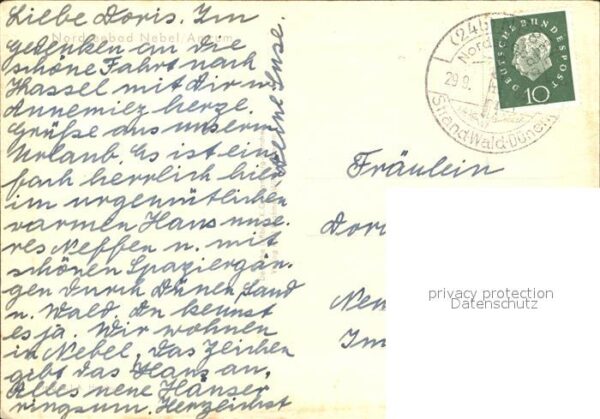 Liebe Doris. Im
Nordseebad Nebel Amrum
gedenken an die
schöne Fahrt nach
Kassel mit Dir u.
Annemiez herze.
Grüße aus unserm
Urlaub. Es ist ein
fach herrlich hier
im urgemütlichen
warmen Haus unse.
res Neffen u. mit
schönen Spaziergän.
gen durch Dünen, Sand
u. Wald. Du kennst
es ja. Wir wohnen
in Nebel, das Zeichen
gibt das Haus an.
Alles neue Häuser
ringsum. Herzlichst
Deine
(24b)
Nord
29.8.
Strand Wald Dünen
DEUTSCHE BUNDESPOST
10
Fräulein
Dor
Neu
Im
privacy protection
Datenschutz